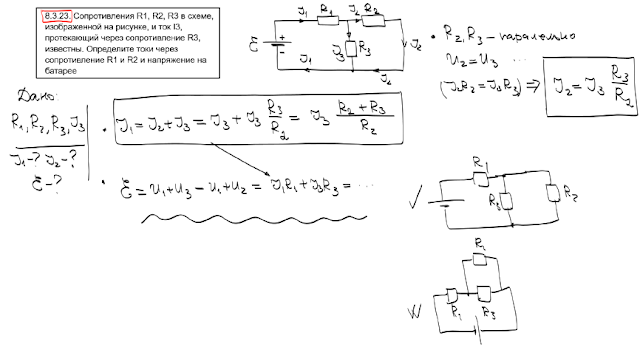 8.3.23. Сопротивления R1, R2, R3 в схеме,
изображенной на рисунке, и ток I3,
протекающий через сопротивление R3,
известны. Определите токи через
сопротивление R1 и R2 и напряжение на
батарее
ℰ + - J₁ R₁ J₂ R₂ J₃ R₃ J₂ J₁ J₂
• R₂, R₃ – паралельно
U₂ = U₃ ...
(J₂R₂ = J₃R₃) ⇒ J₂ = J₃ R₃/R₂
Дано:
R₁, R₂, R₃, J₃
J₁-? J₂-?
ℰ-?
• J₁ = J₂ + J₃ = J₃ + J₃ R₃/R₂ = J₃ (R₂ + R₃)/R₂
• ℰ = U₁ + U₃ – U₁ + U₂ = J₁R₁ + J₃R₃ = ...
R₃ R₂
R₁ R₃